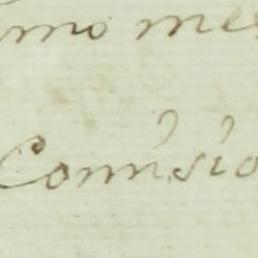 mo mes
Comisio